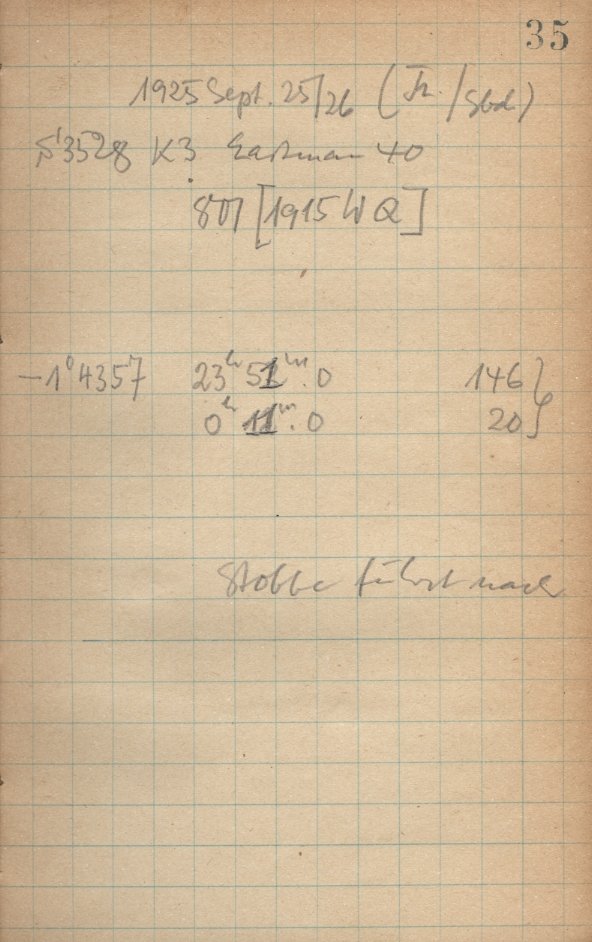 35
1925 Sept. 25/26 (Fr./Sbd.)
3528 K3 Eastman 40
807 [1915 WQ]
-1°4357 23h 51m.0 146}
0h 11m.0 20}
Stobbe führt nach